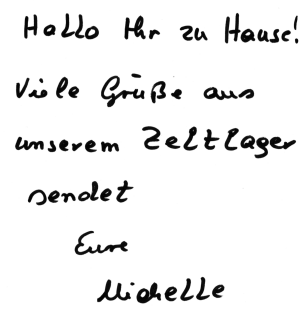 Hallo Ihr zu Hause!
Viele Grüße aus
unserem Zeltlager
sendet
Eure
Michelle